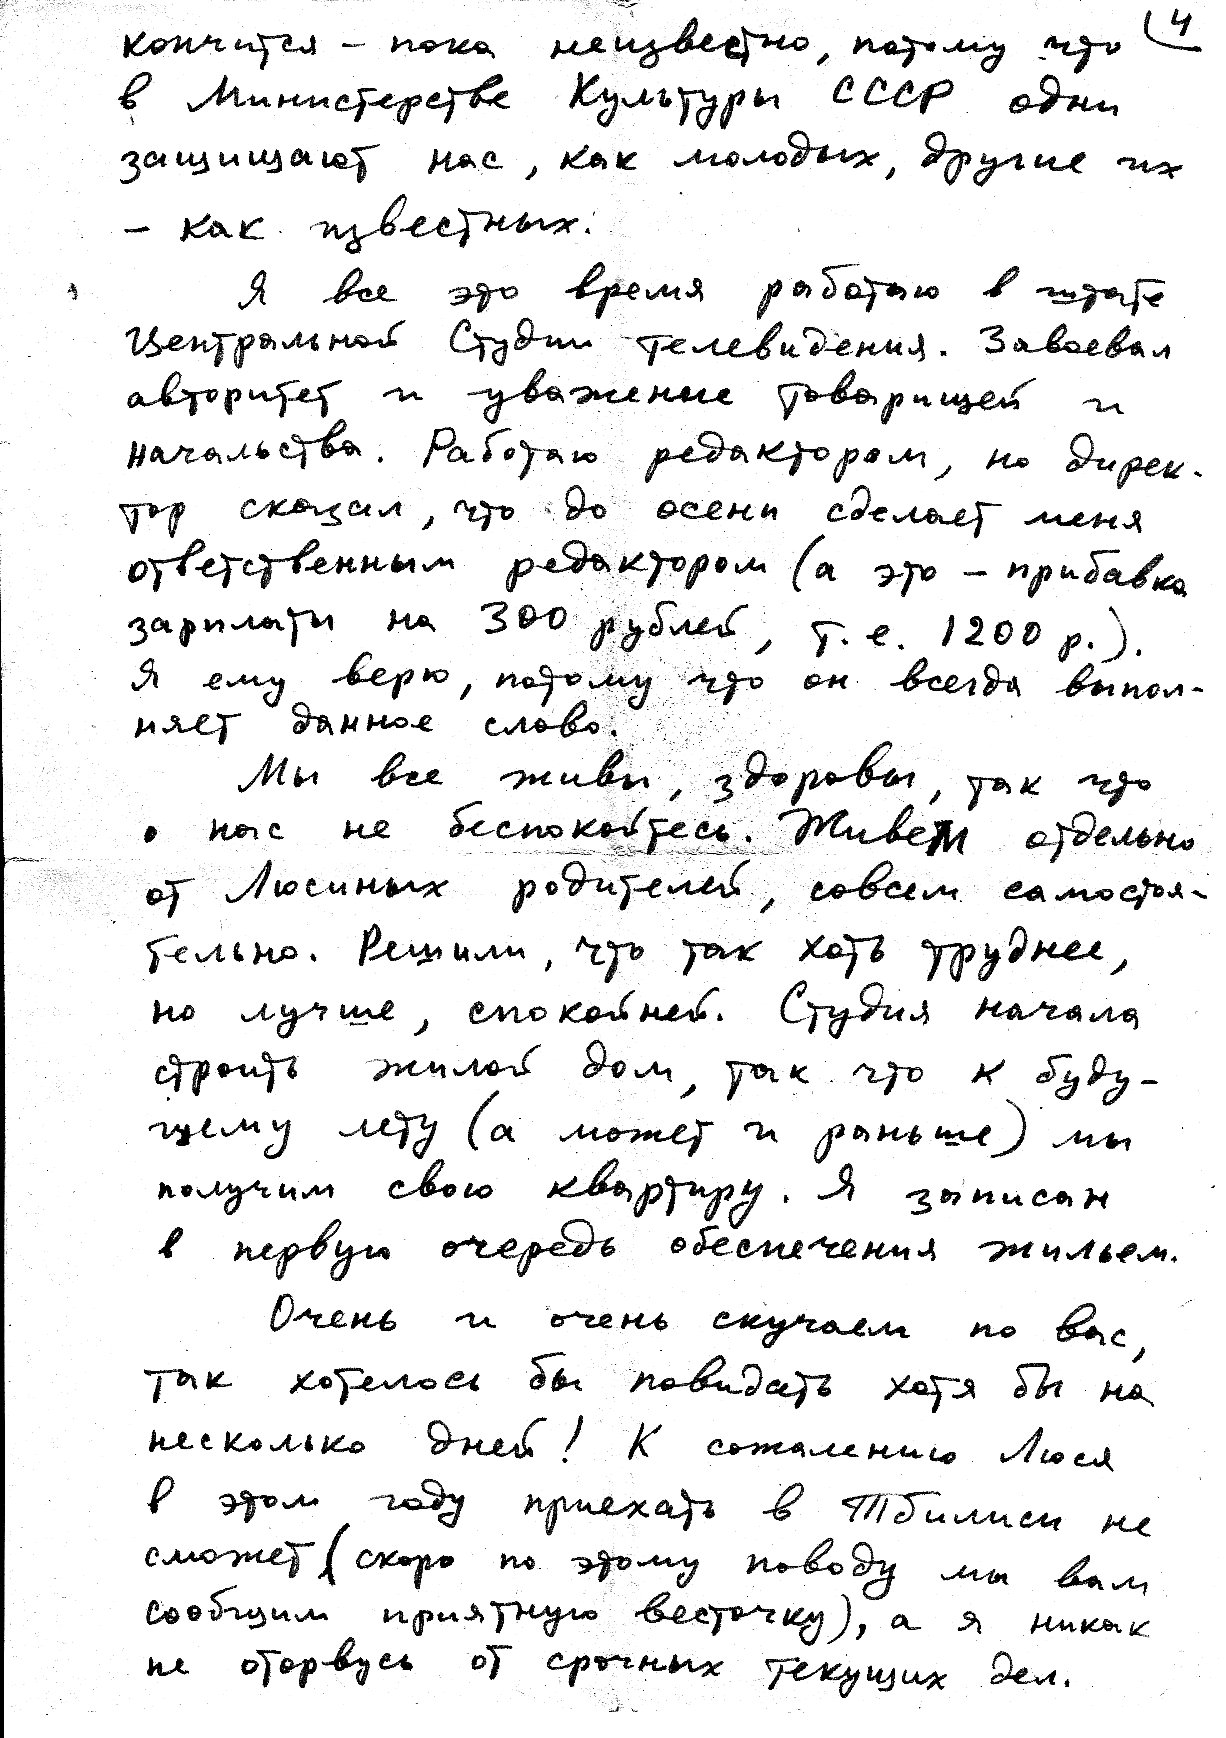 4
кончится – пока неизвестно, потому что
в Министерстве Культуры СССР одни
защищают нас, как молодых, другие их
– как известных.
Я все это время работаю в штате
Центральной Студии телевидения. Завоевал
авторитет и уважение товарищей и
начальства. Работаю редактором, но дирек-
тор сказал, что до осени сделает меня
ответственным редактором (а это – прибавка
зарплаты на 300 рублей, т.е. 1200 р.).
Я ему верю, потому что он всегда выпол-
няет данное слово.
Мы все живы, здоровы, так что
о нас не беспокойтесь. Живем отдельно
от Люсиных родителей, совсем самостоя-
тельно. Решили, что так хоть труднее,
но лучше, спокойней. Студия начала
строить жилой дом, так что к буду-
щему лету (а может и раньше) мы
получим свою квартиру. Я записан
в первую очередь обеспечения жильем.
Очень и очень скучаем по вас,
так хотелось бы повидать хотя бы на
несколько дней! К сожалению Люся
в этом году приехать в Тбилиси не
сможет (скоро по этому поводу мы вам
сообщим приятную весточку), а я никак
не оторвусь от срочных текущих дел.